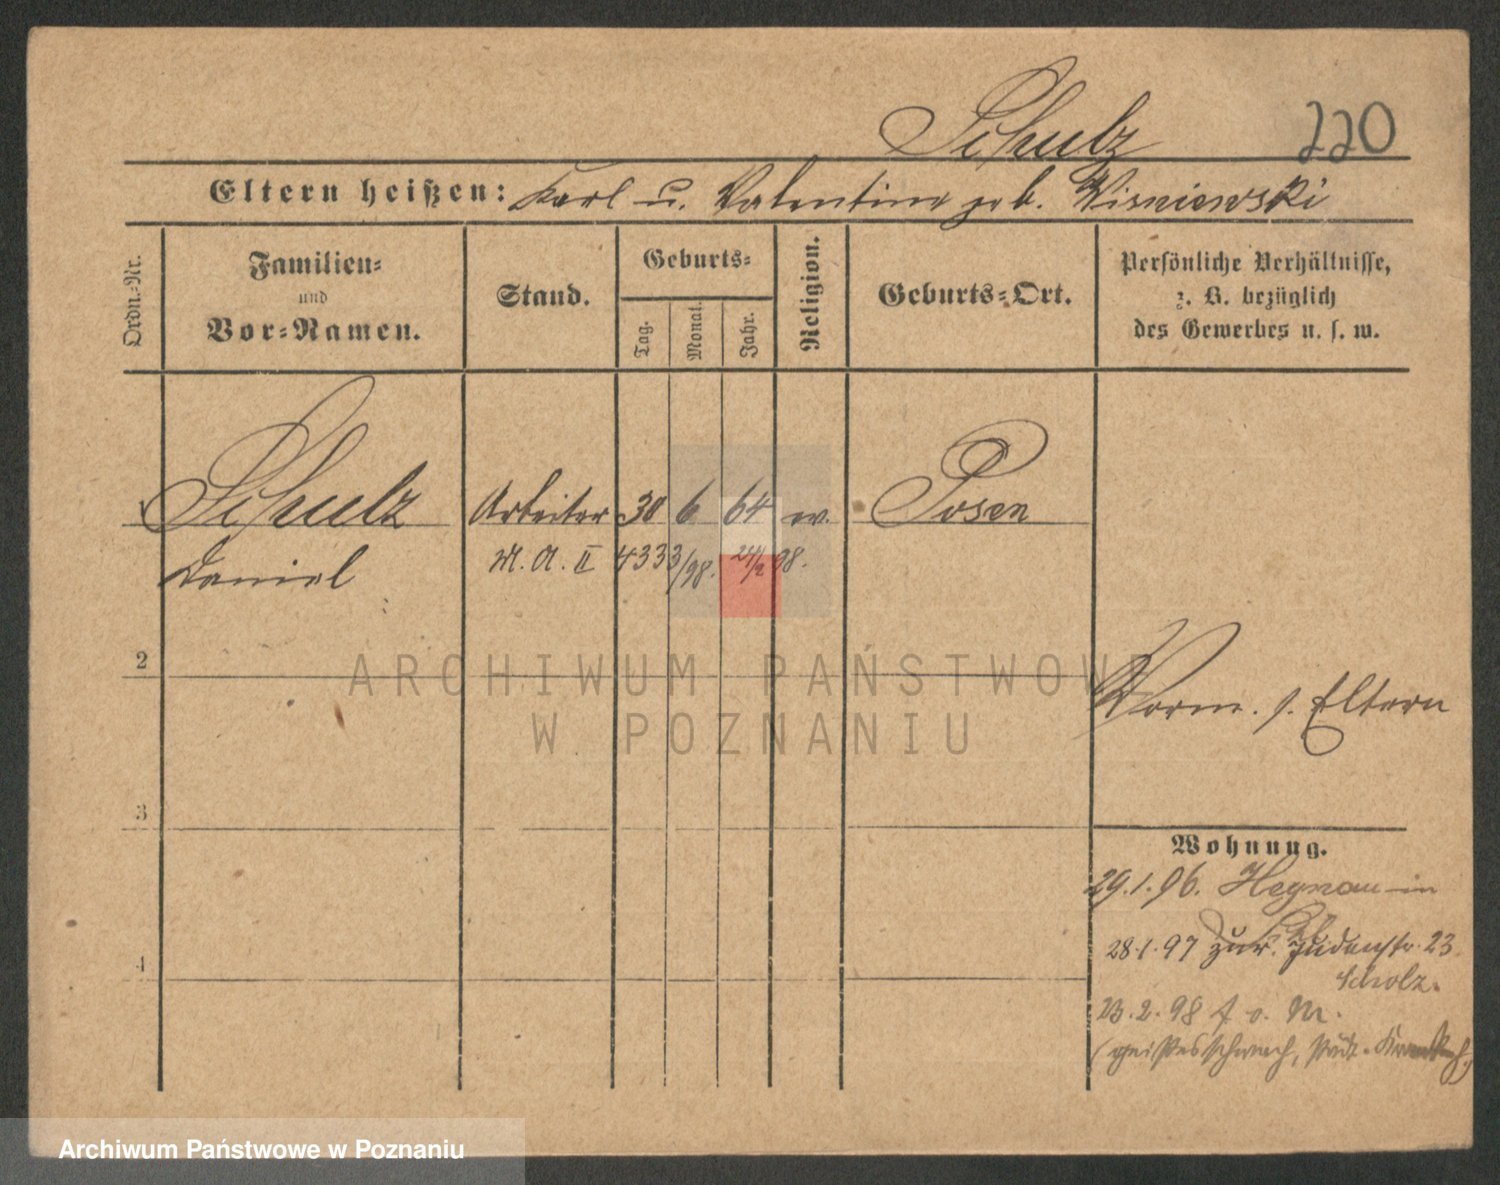 Schulz 220
Eltern heißen: Karl u. Valentine geb. Wisniewski
Ordn.-Nr.
Familien-
und
Vor-Namen.
Stand.
Geburts-
Tag.
Monat.
Jahr.
Religion.
Geburts-Ort.
Persönliche Verhältnisse,
z. B. bezüglich
des Gewerbes u. s. w.
1 Schulz Arbeiter 30 6 64 ev. Posen
Daniel M. A. II 4333/98. 24/2 98.
2
Vorm. s. Eltern
3
Wohnung.
29.1.96.
28.1.97 zur. Judenstr. 23.
Scholz.
4
23.2.98 f. v. M.
(geistesschwach,
ARCHIWUM PAŃSTWOWE
W POZNANIU
Archiwum Państwowe w Poznaniu